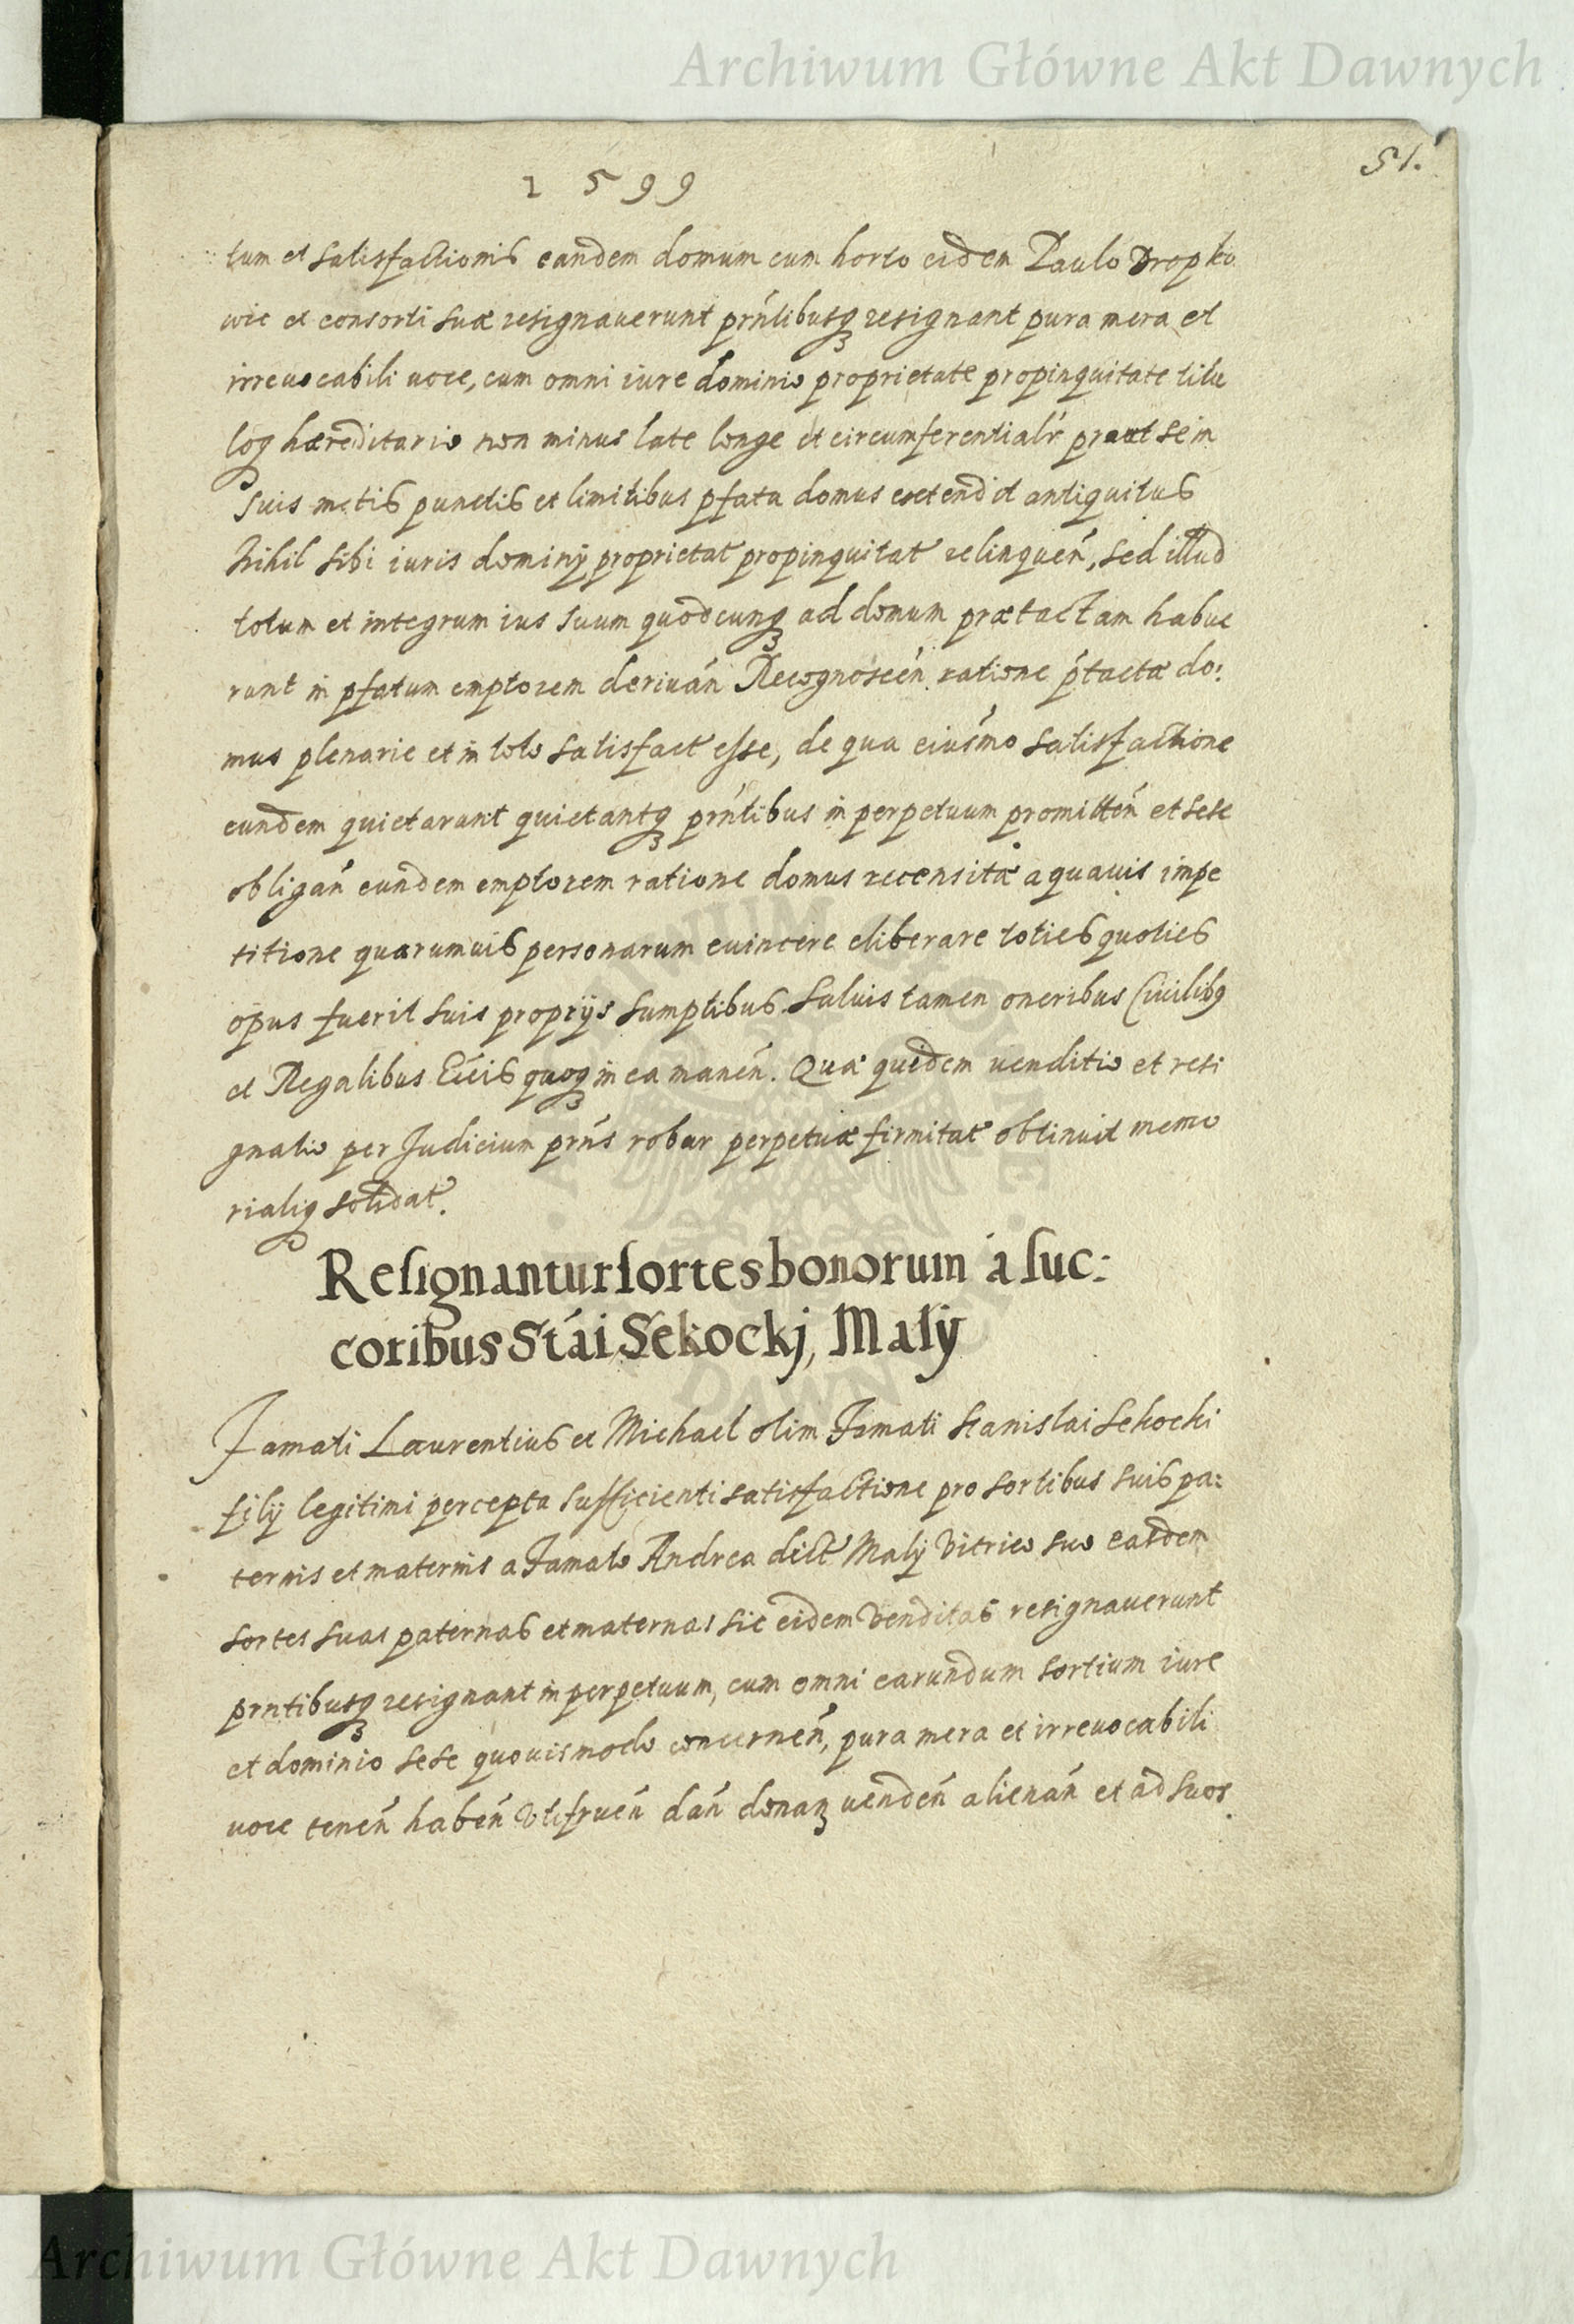 Archiwum Główne Akt Dawnych
51.
1599
tum et satisfactionis eandem domum cum horto eidem Paulo Dropko
wic et consorti suæ resignauerunt prńtibusqꝫ resignant pura mera et
irreuocabili uoce, cum omni iure dominio proprietate propinquitate titu
loqꝫ hæreditario non minus late longe et circumferentialr prout se in
suis metis punctis et limitibus pfata domus extendit antiquitus
Nihil sibi iuris dominij proprietat propinquitat relinqueń, sed illud
totum et integrum ius suum quodcunqꝫ ad domum prætactam habue
runt in pfatum emptorem deriuań Recognosceń ratione ṕtactæ do:
mus plenarie et in toto satisfact esse, de qua eiusmo satisfactione
eundem quietarunt quietantqꝫ prńtibus in perpetuum promitteń et sese
obligań eundem emptorem ratione domus recensitæ a quauis impe
titione quarumuis personarum euincere eliberare toties quoties
opus fuerit suis proprijs sumptibus. Saluis tamen oneribus Ciuilibꝫ
et Regalibus Ećcis quoqꝫ in ea maneń. Quæ quidem uenditio et resi
gnatio per Judicium prńs robur perpetuæ firmitat obtinuit memo
rialiqꝫ solidat.
Resignantur sortes bonorum á suc:
coribus Stái Sekockj, Malÿ
Famati Laurentius et Michael olim Famati Stanislai Sekocki
filij legitimi percepta sufficienti satisfactione pro sortibus suis pa:
ternis et maternis a Famato Andrea dict Malÿ Vitrico suo easdem
sortes suas paternas et maternas sic eidem Venditas resignauerunt
prntibusqꝫ resignant in perpetuum, cum omni earundum sortium iure
et dominio sese quouismodo concerneń, pura mera et irreuocabili
uoce teneń habeń Vtifrueń dań donanꝫ uendeń alienań et ad suos
Archiwum Główne Akt Dawnych